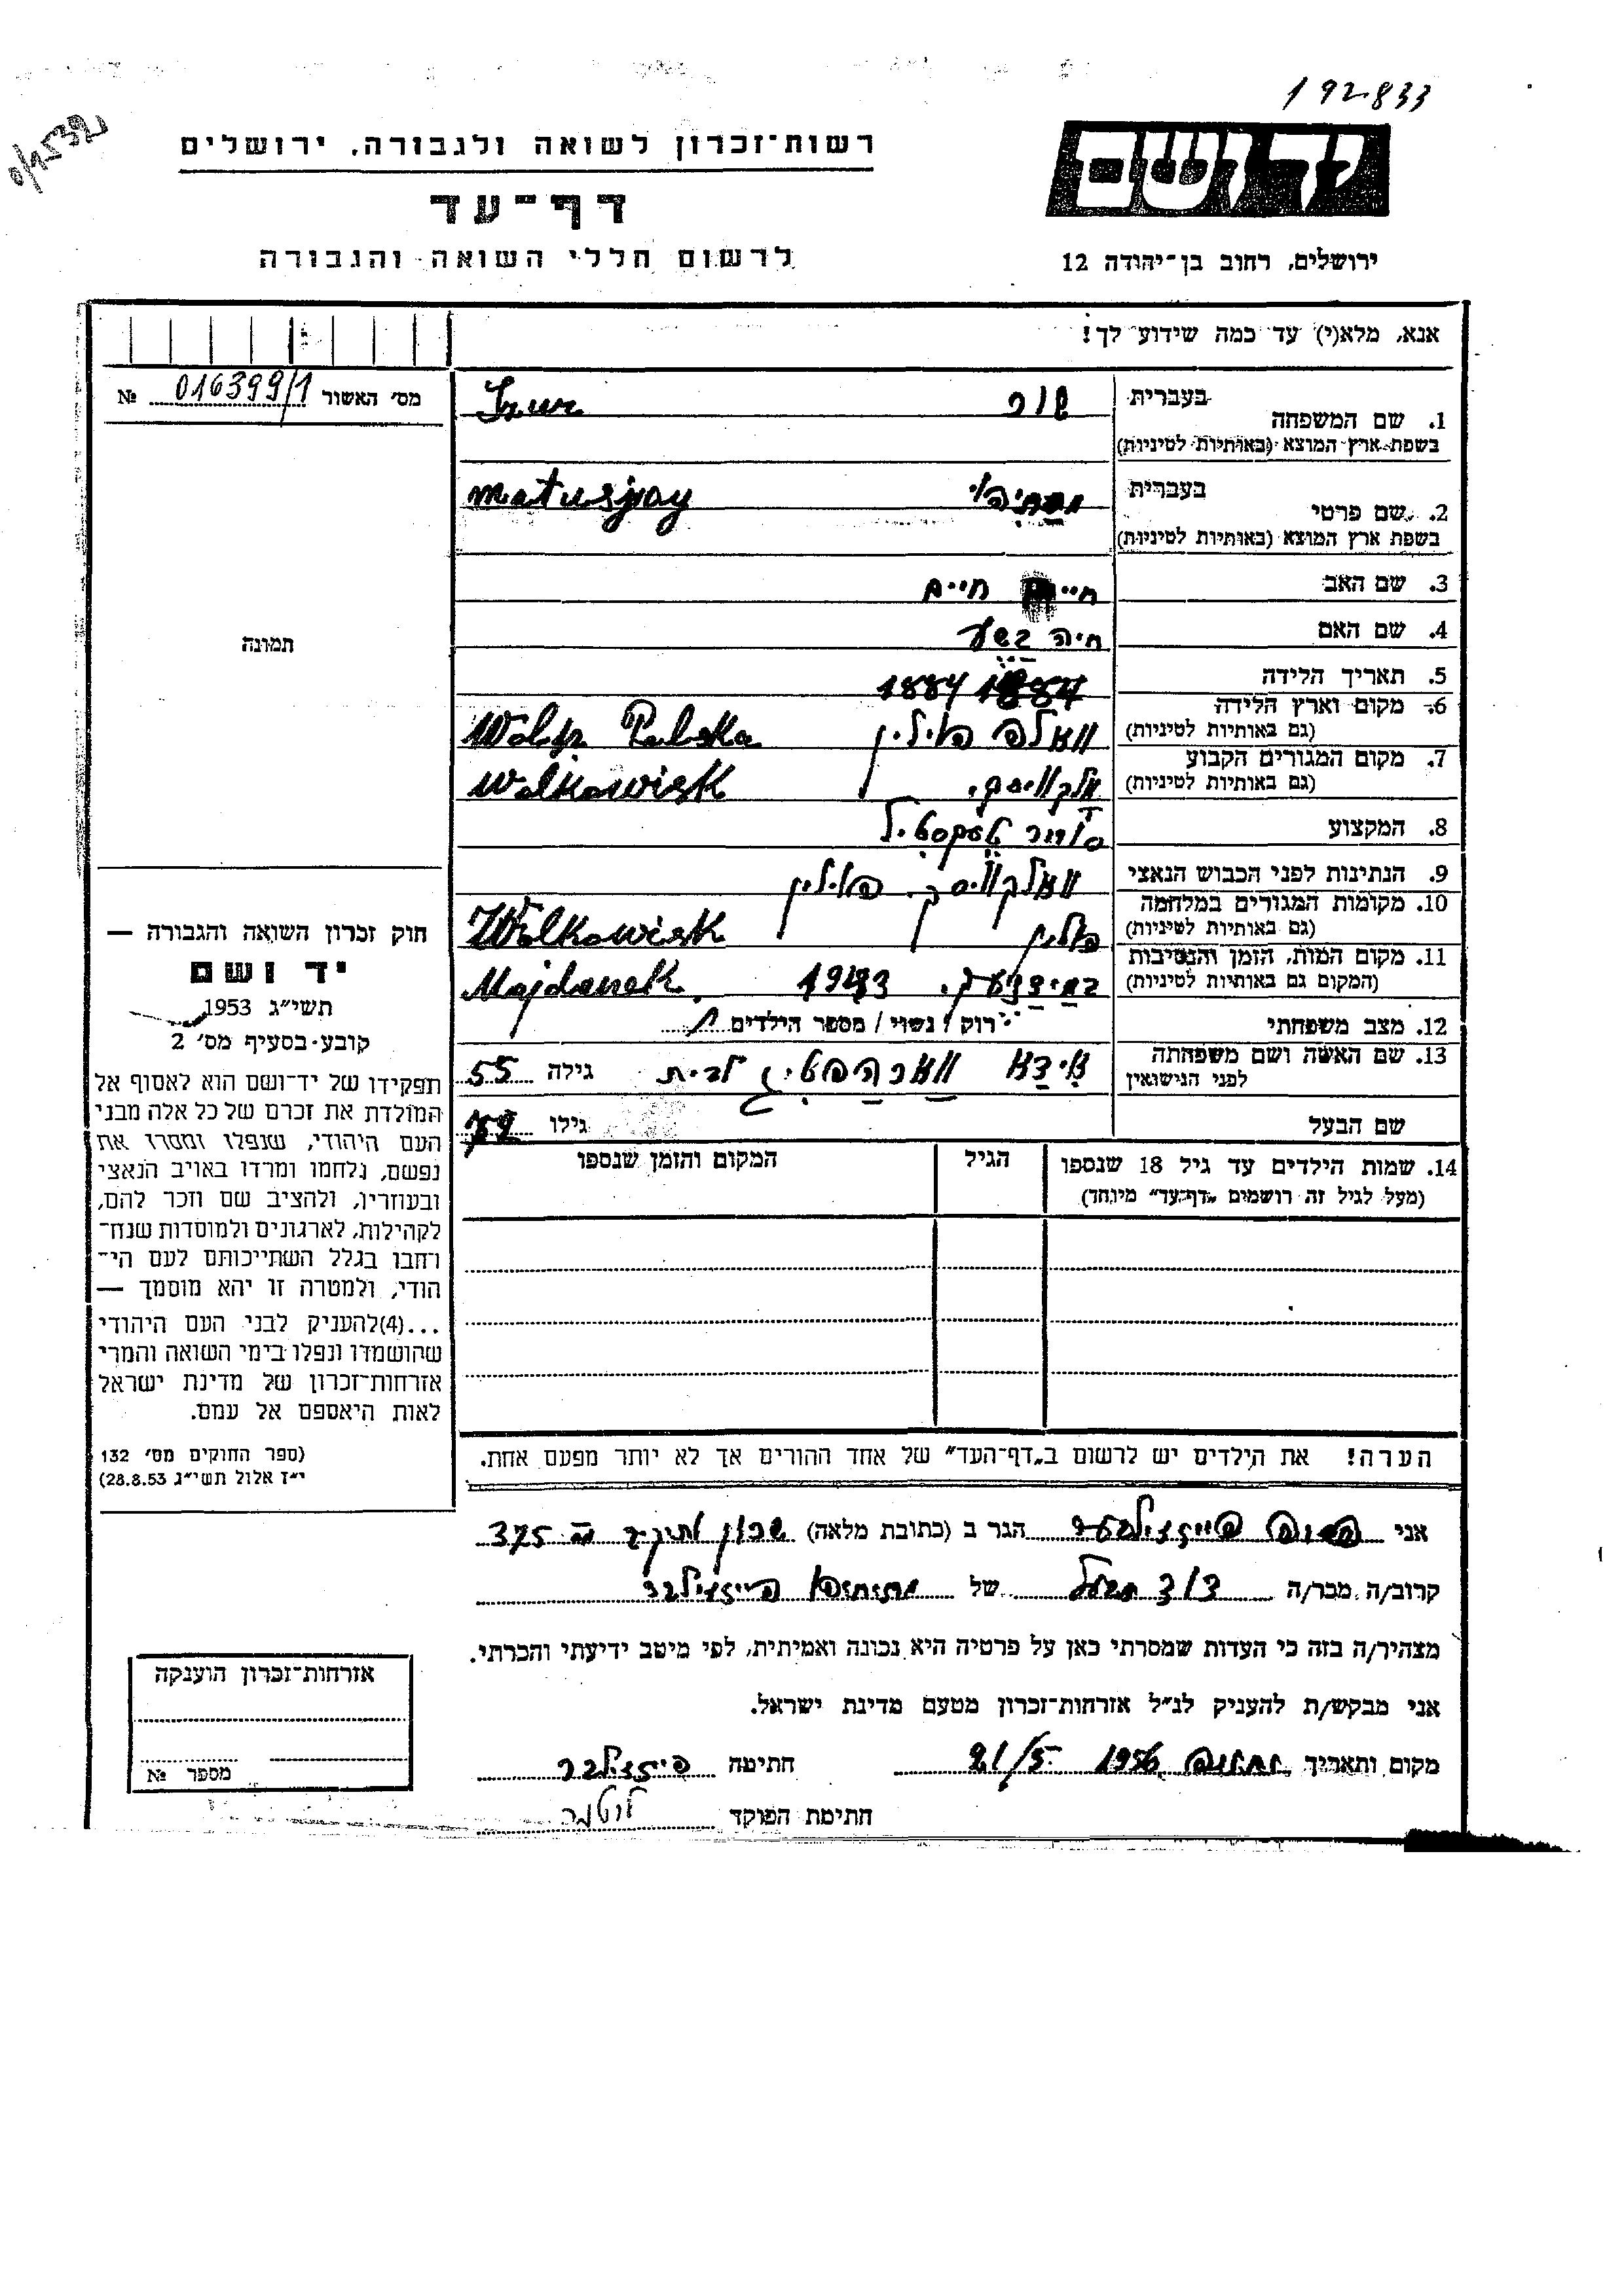 192833
רשות־זכרון לשואה ולגבורה, ירושלים
יד ושם
דף־עד
לרשום חללי השואה והגבורה
ירושלים, רחוב בן־יהודה 12
אנא, מלא(י) עד כמה שידוע לך!
מס׳ האשור 016399/1 №
תמונה
חוק זכרון השואה והגבורה —
יד ושם
תשי״ג 1953
קובע בסעיף מס׳ 2
תפקידו של יד־ושם הוא לאסוף אל
המולדת את זכרם של כל אלה מבני
העם היהודי, שנפלו ומסרו את
נפשם, נלחמו ומרדו באויב הנאצי
ובעוזריו, ולהציב שם וזכר להם,
לקהילות, לארגונים ולמוסדות שנח־
רחבו בגלל השתייכותם לעם הי־
הודי, ולמטרה זו יהא מוסמך —
...(4)להעניק לבני העם היהודי
שהושמדו ונפלו בימי השואה והמרי
אזרחות־זכרון של מדינת ישראל
לאות היאספם אל עמם.
(ספר החוקים מס׳ 132
י״ז אלול תשי״ג 28.8.53)
בעברית
1. שם המשפחה
בשפת ארץ המוצא (באותיות לטיניות)
בעברית
2. שם פרטי matusjay
בשפת ארץ המוצא (באותיות לטיניות)
3. שם האב חיים
4. שם האם חיה
5. תאריך הלידה 1884
6. מקום וארץ הלידה
(גם באותיות לטיניות)
7. מקום המגורים הקבוע Walkowisk
(גם באותיות לטיניות)
8. המקצוע
9. הנתינות לפני הכבוש הנאצי פוילין
10. מקומות המגורים במלחמה Wolkowisk
(גם באותיות לטיניות)
11. מקום המות, הזמן והנסיבות 1943 Majdanek
(המקום גם באותיות לטיניות)
12. מצב משפחתי רוק / נשוי / מספר הילדים
13. שם האשה ושם משפחתה גילה 55
לפני הנישואין
שם הבעל גילו
14. שמות הילדים עד גיל 18 שנספו הגיל המקום והזמן שנספו
(מעל לגיל זה רושמים „דף־עד״ מיוחד)
הערה! את הילדים יש לרשום ב„דף־העד״ של אחד ההורים אך לא יותר מפעם אחת.
אני הגר ב (כתובת מלאה) שכון 375
קרוב/ה מכר/ה של
מצהיר/ה בזה כי העדות שמסרתי כאן על פרטיה היא נכונה ואמיתית, לפי מיטב ידיעתי והכרתי.
אני מבקש/ת להעניק לנ״ל אזרחות־זכרון מטעם מדינת ישראל.
מקום ותאריך 1956 21/5 חתימה
חתימת הפוקד
אזרחות־זכרון הוענקה
מספר №